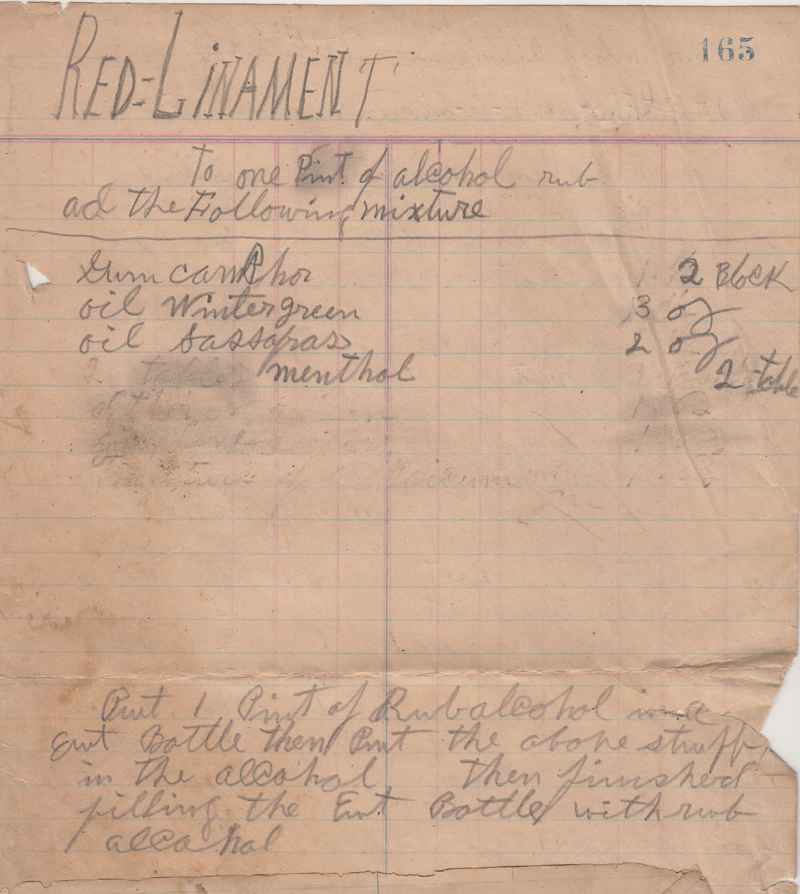 165
RED-LiNAMENT
To one Pint of alcohol rub
ad The Following mixture
Gum camphor 1 2 Block
oil Wintergreen 3 oz
oil Sassafras 2 oz
2 menthol 2 table
Put 1 Pint of Rub alcohol in a
Bottle then Put the above stuff
in the alcohol then finished
filling the Bottle with rub
alcahol